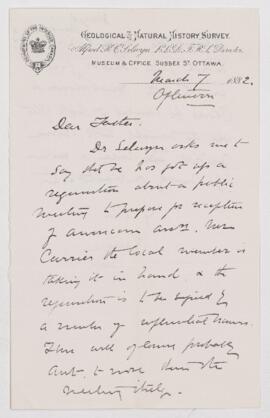 GEOLOGICAL AND NATURAL HISTORY SURVEY.
Alfred R. C. Selwyn, LL.D. F.R.S. Director.
MUSEUM & OFFICE, SUSSEX ST OTTAWA.
March 7 1882.
Dear
Dr Selwyn asks me to
say that he has got up a
requisition about a public
meeting to prepare for reception
of American Assn. Mr
Currier the local member is
taking it in hand & the
requisition is to be signed by
a number of influential names.
This will of course probably
to more than the
meeting itself.